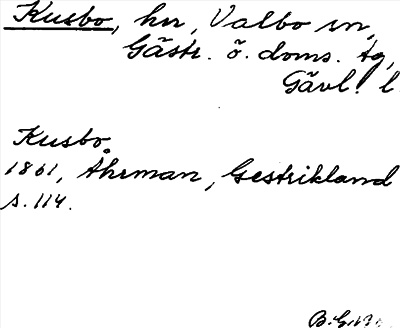 Kusbo, hn, Valbo sn,
Gästr. ö. doms. tg,
Gävl. l
Kusbo
1861, Åhrman, Gestrikland
s. 114.